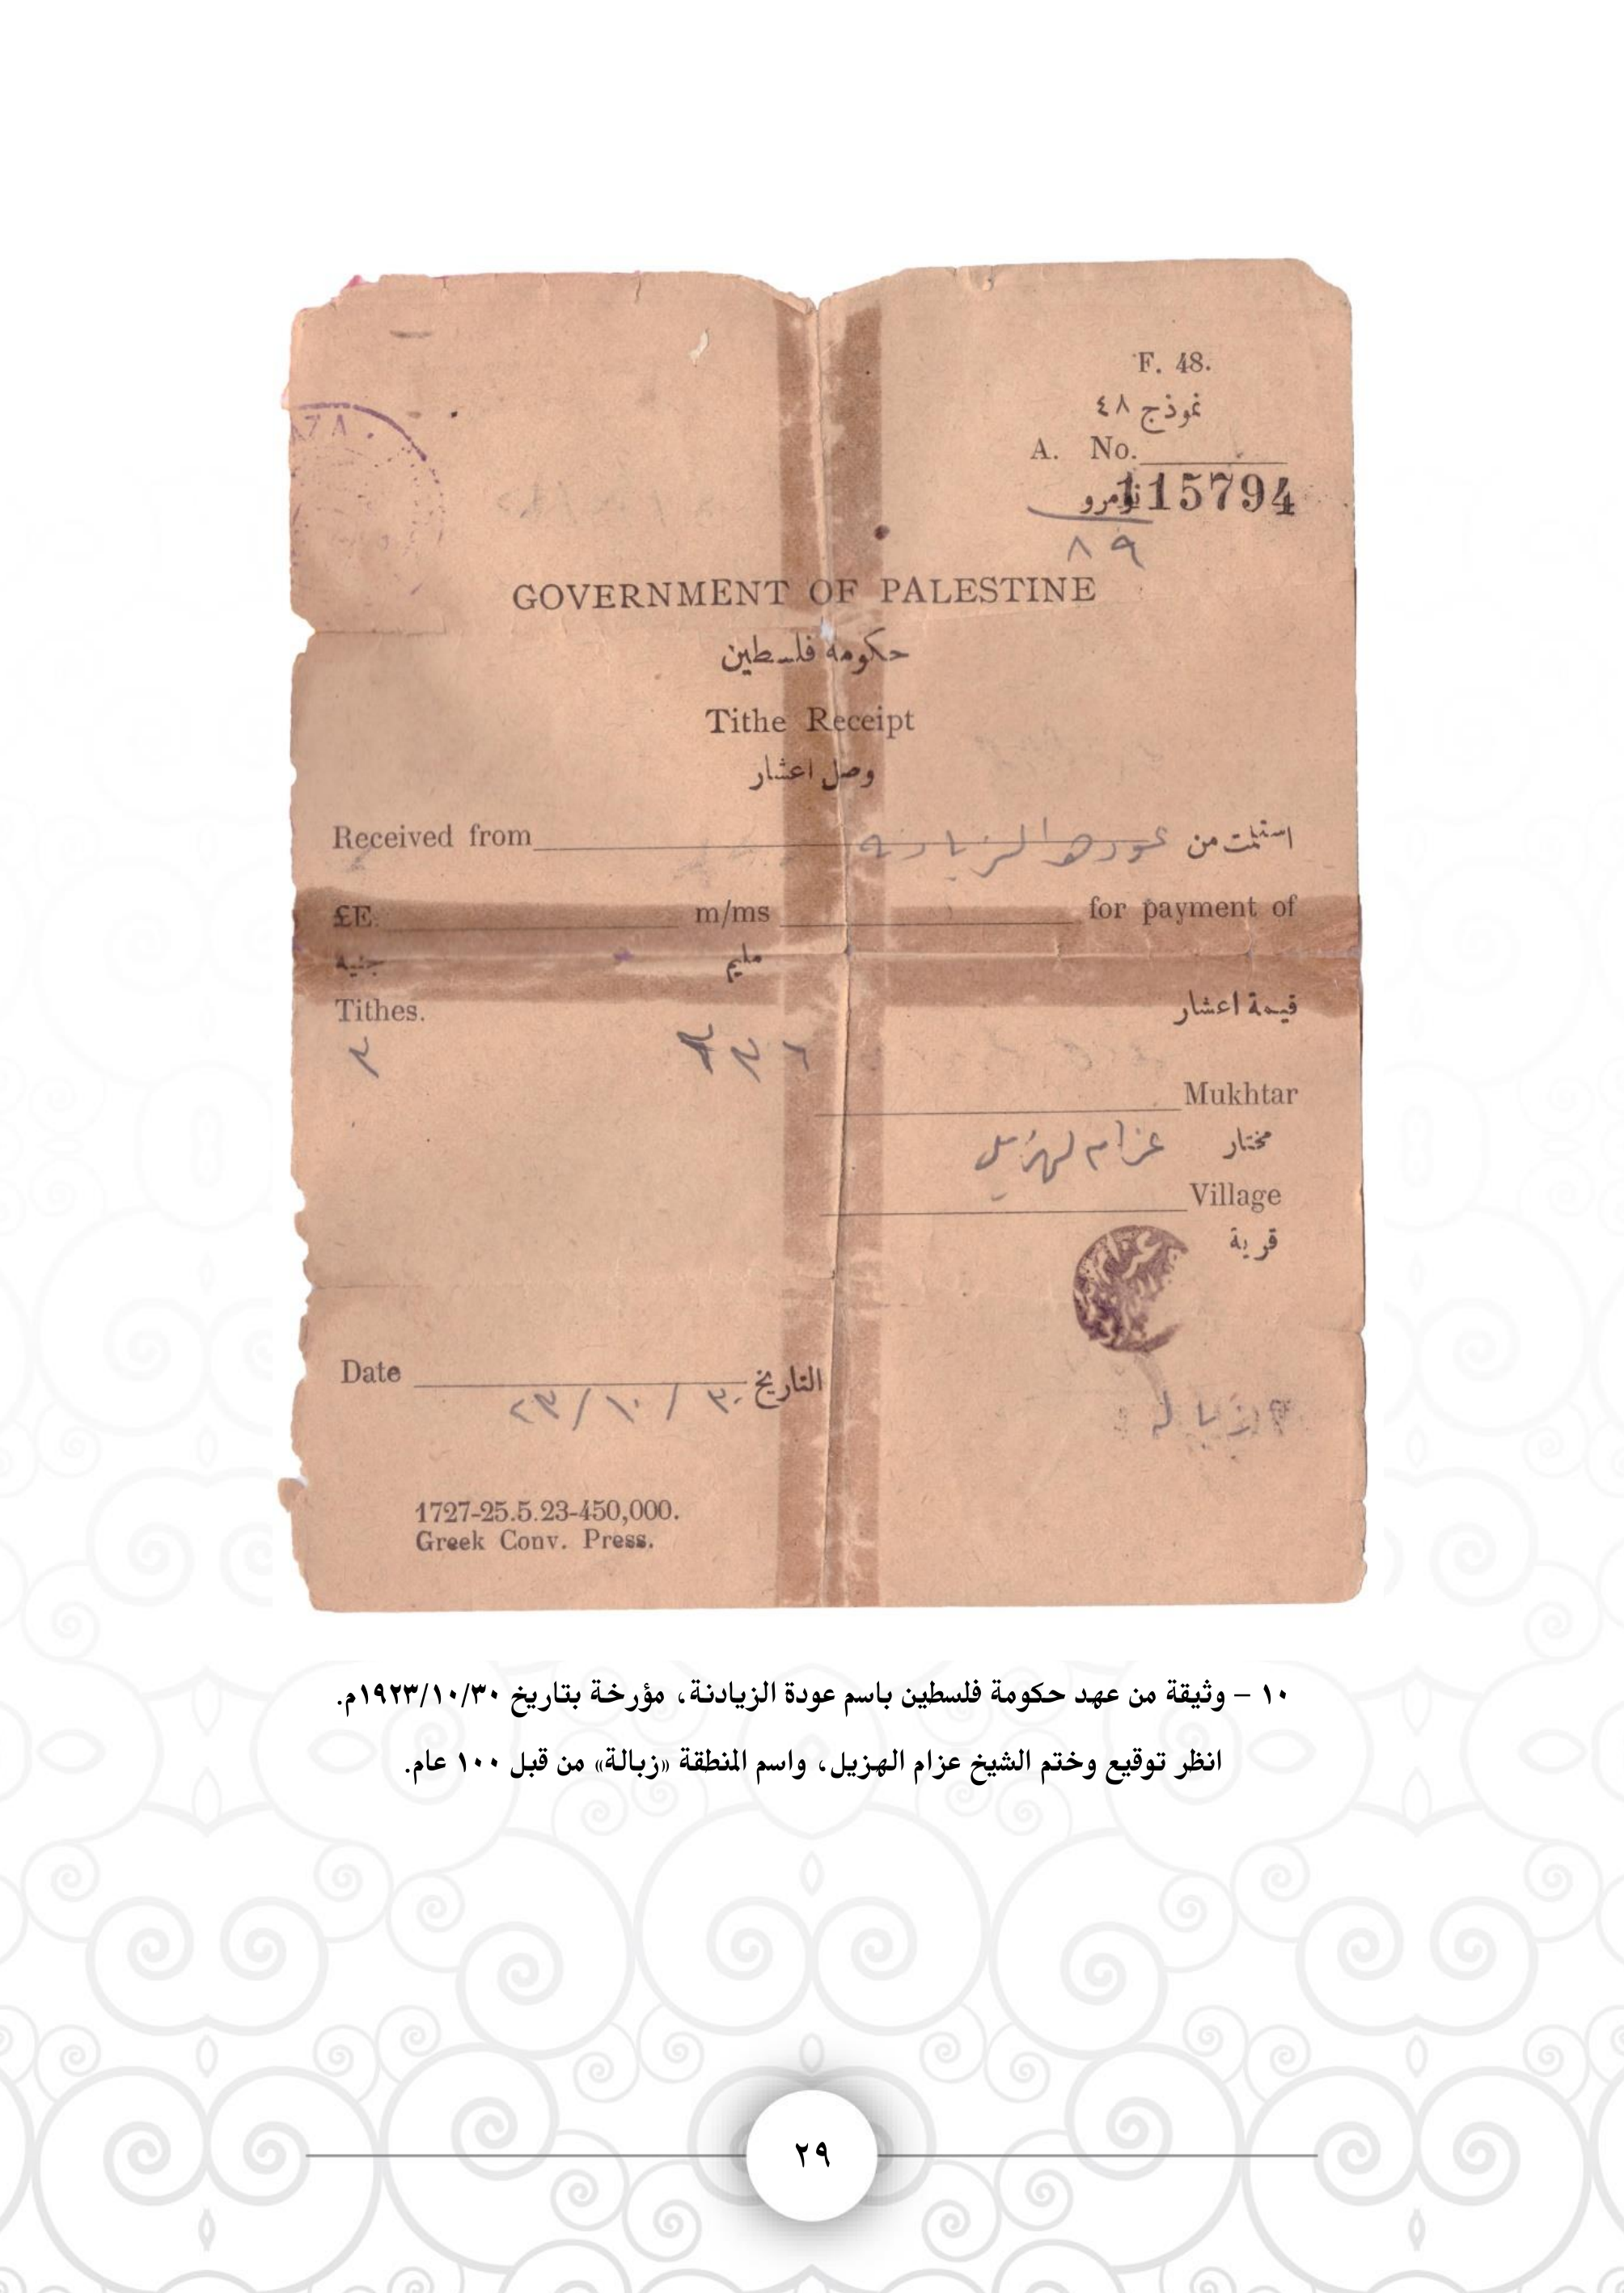 F. 48.
نموذج ٤٨
A. No.
نومرو 115794
٨٩
GOVERNMENT OF PALESTINE
حكومة فلسطين
Tithe Receipt
وصل اعشار
Received from عوده الزيادنه استلمت من
£E. m/ms for payment of
جنيه مليم
Tithes. قيمة اعشار
Mukhtar
مختار عزام الهزيل
Village
قرية
Date التاريخ ٣٠/١٠/٢٣
زباله
1727-25.5.23-450,000.
Greek Conv. Press.
١٠ – وثيقة من عهد حكومة فلسطين باسم عودة الزيادنة، مؤرخة بتاريخ ١٩٢٣/١٠/٣٠م.
انظر توقيع وختم الشيخ عزام الهزيل، واسم المنطقة «زبالة» من قبل ١٠٠ عام.
٢٩